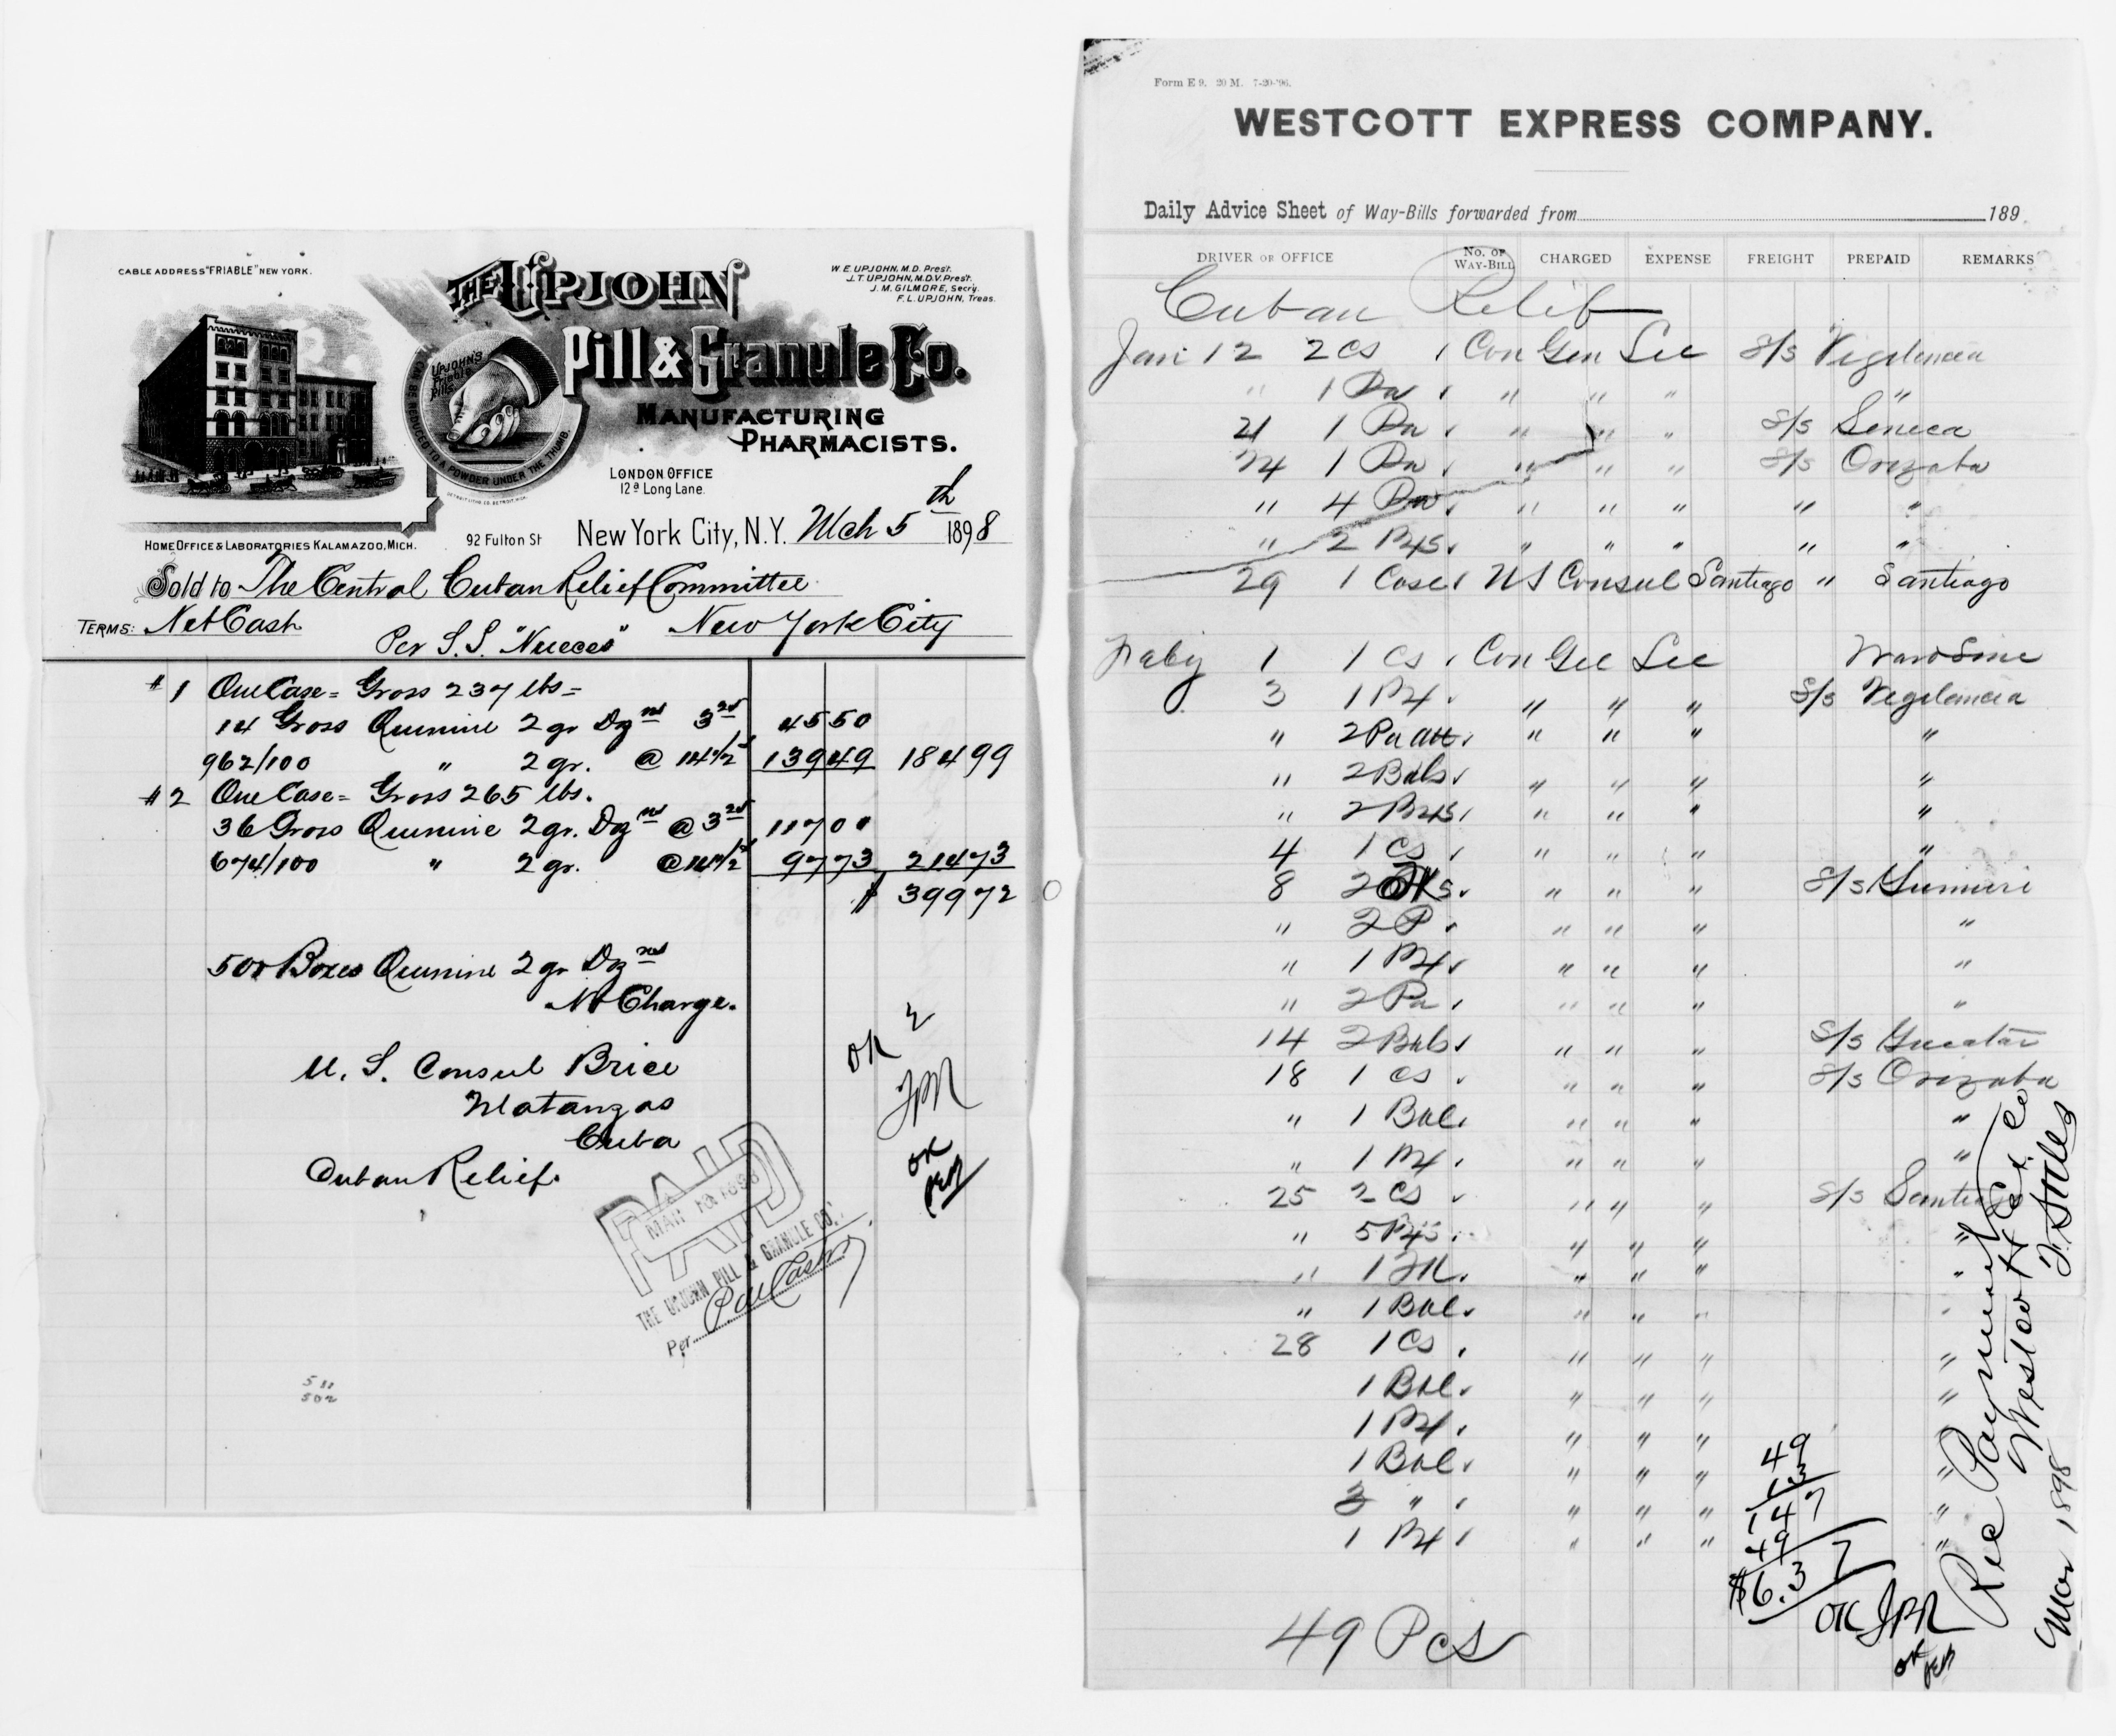 CABLE ADDRESS "FRIABLE" NEW YORK.
THE UPJOHN
Pill & Granule Co.
MANUFACTURING
PHARMACISTS.
W. E. UPJOHN, M.D. Prest.
J. T. UPJOHN, M.D.V. Prest.
J. M. GILMORE, Secry.
F. L. UPJOHN, Treas.
UPJOHN'S
Friable
Pills
CAN BE REDUCED TO A POWDER UNDER THE THUMB.
LONDON OFFICE
12a Long Lane.
HOME OFFICE & LABORATORIES KALAMAZOO, MICH.
92 Fulton St New York City, N.Y. Mch 5th 1898
Sold to The Central Cuban Relief Committee
TERMS: Net Cash New York City
Per S.S. "Nueces"
#1 One Case = Gross 237 lbs =
14 Gross Quinine 2 gr Dz 3 25 45 50
962/100 " 2 gr. @ 14 1/2 139 49 184 99
#2 One Case = Gross 265 lbs.
36 Gross Quinine 2 gr. Dz @ 3 25 117 00
674/100 " 2 gr. @ 14 1/2 97 73 214 73
$ 399 72
500 Boxes Quinine 2 gr Dz
No Charge.
U. S. Consul Brice
Matanzas
Cuba
Cuban Relief.
OK
OK
PAID
MAR 1898
THE UPJOHN PILL & GRANULE CO.
Per
511
502
Form E 9. 20 M. 7-20-'96.
WESTCOTT EXPRESS COMPANY.
Daily Advice Sheet of Way-Bills forwarded from 189
DRIVER OR OFFICE No. OF WAY-BILL CHARGED EXPENSE FREIGHT PREPAID REMARKS
Cuban Relief
Jan 12 2 cs Con Gen Lee S/s Vigilancia
" 1 Pa " " " "
21 1 Pa " " " S/s Seneca
24 1 Pa " " " S/s Orizaba
" 4 Pa " " " " "
" 2 Bxs " " " " "
29 1 Case US Consul Santiago " Santiago
Feby 1 1 cs Con Gel Lee Ward Line
3 1 Bx " " " S/s Vigilancia
" 2 Pa " " " "
" 2 Bbls " " " "
" 2 Bxs " " " "
4 1 cs " " " "
8 2 " " " S/s Yumuri
" 2 P " " " "
" 1 Bx " " " "
" 2 Pa " " " "
14 2 Bbls " " " S/s Yucatan
18 1 cs " " " S/s Orizaba
" 1 Bbl " " " "
" 1 Bx " " " "
25 2 cs " " " S/s Santiago
" 5 Bxs " " " "
" 1 " " " "
" 1 Bbl " " " "
28 1 cs " " " "
1 Bbl " " " "
1 Bx " " " "
1 Bbl " " " "
3 " " " " "
1 Bx " " " "
49
13
147
49
$6.37
OK
OK
49 Pcs
Rec Payment
Westcott Ex. Co
Mar 1898